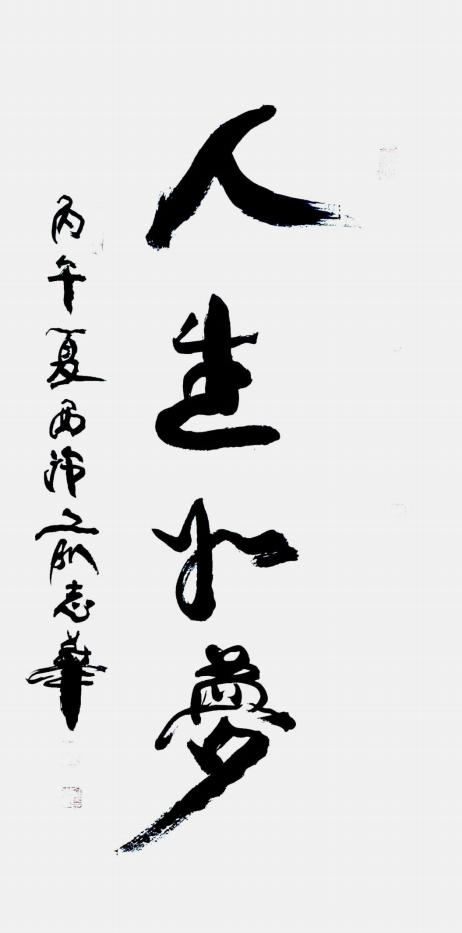 人生如夢
丙午夏西沛之前志華